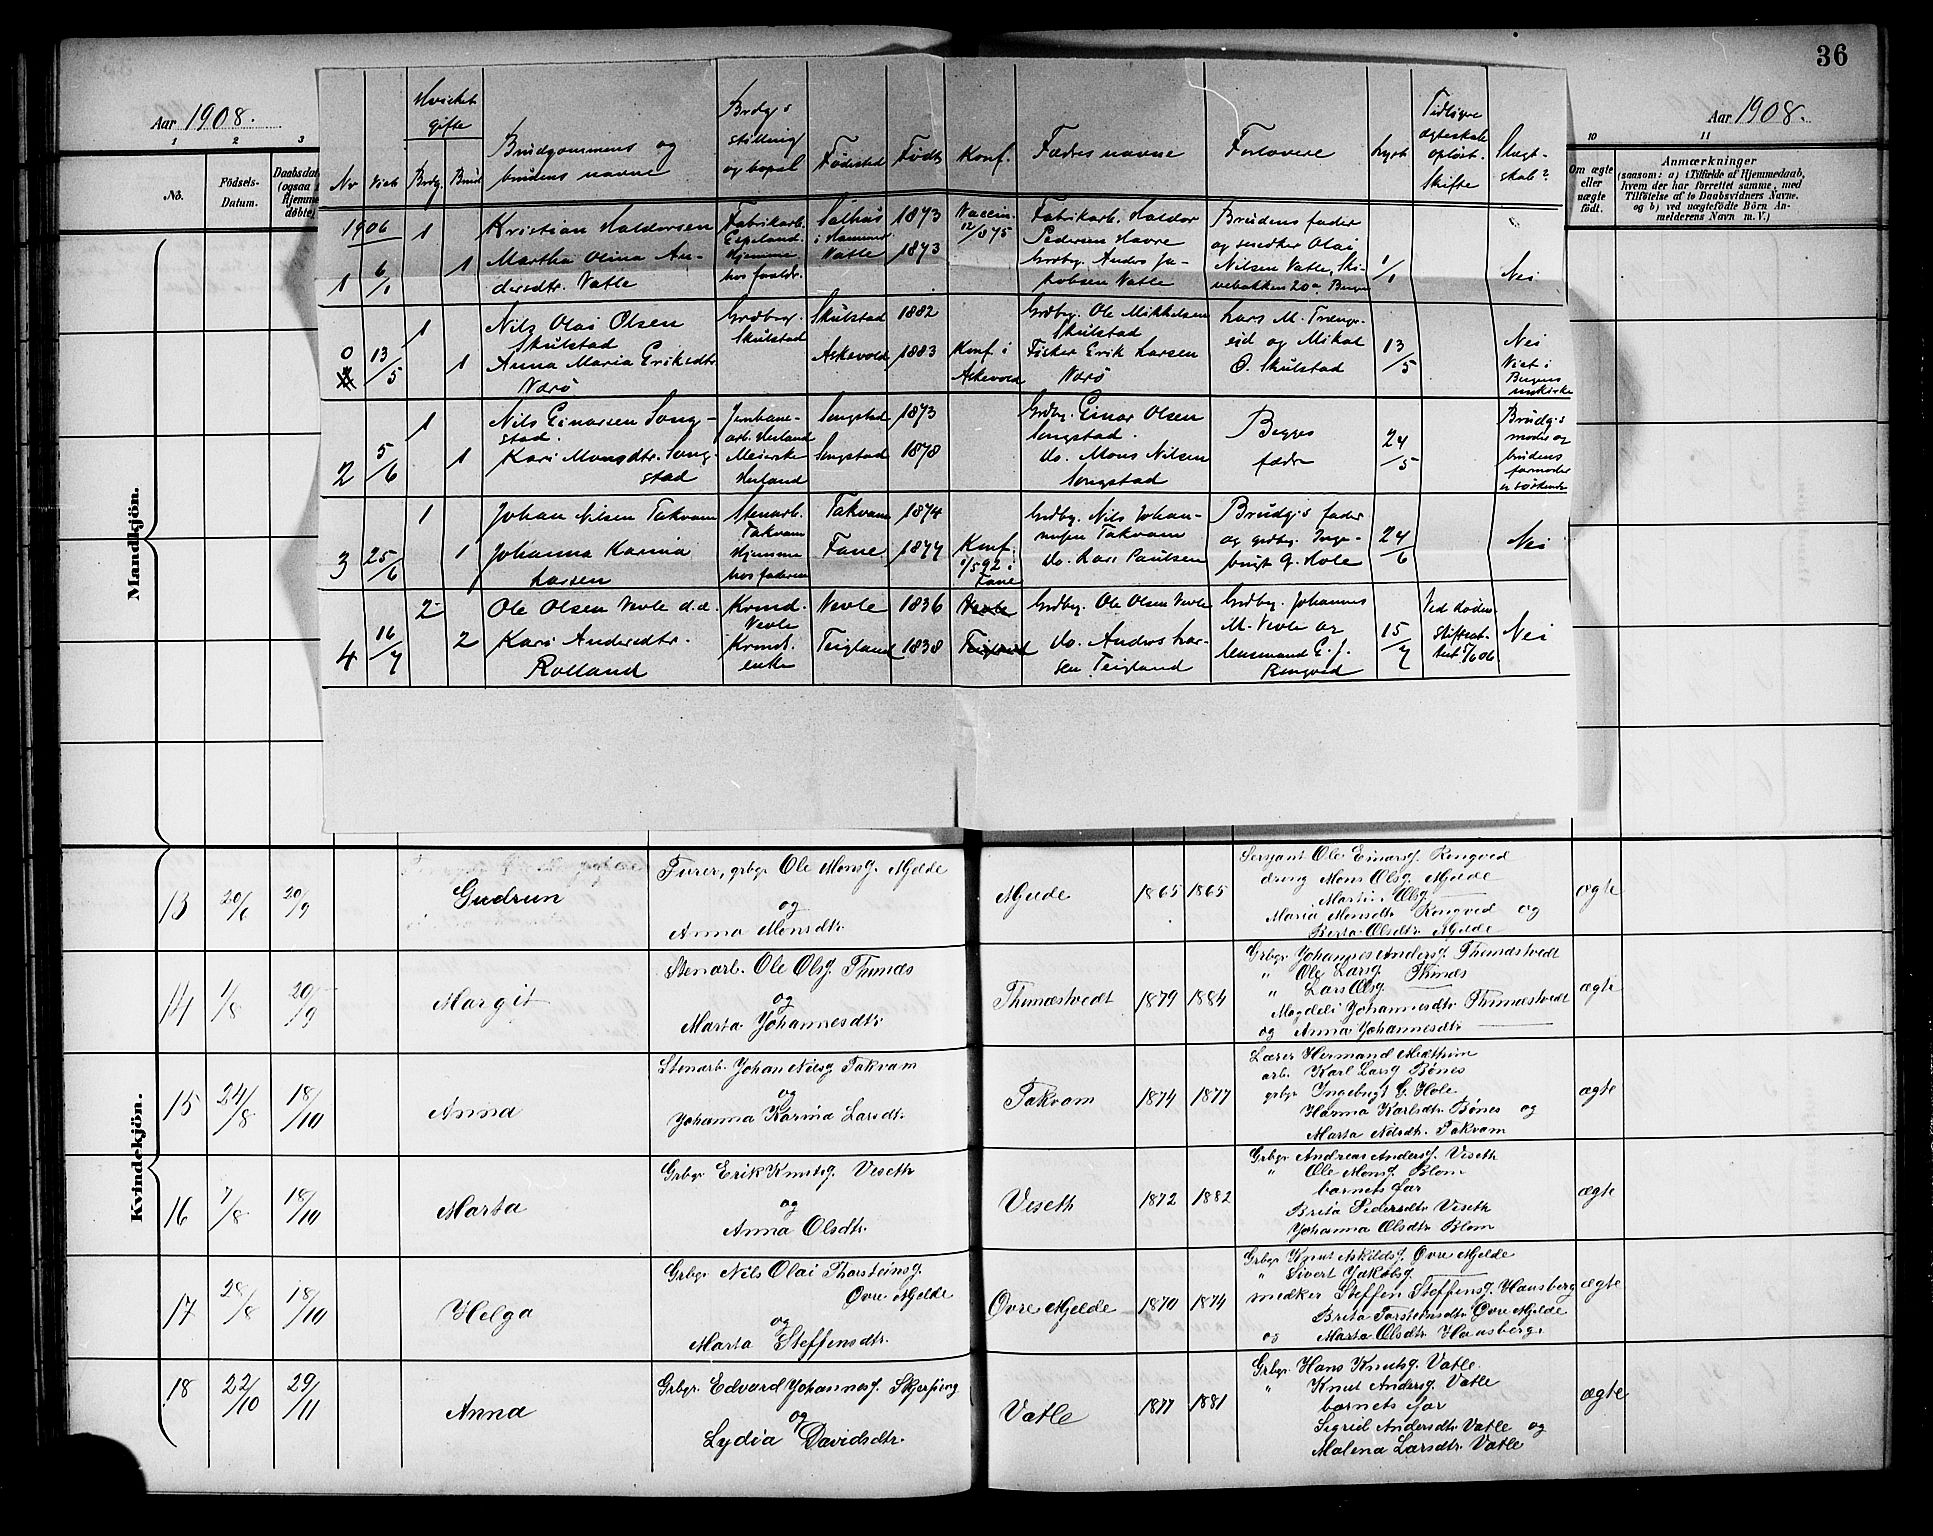 36
Aar 1908.
Aar 1908.
1 2 3
10 11
No.
Födsels-Datum.
Daabsdat
(ogsaa
Hjemme
döbte)
Om ægte eller uægte födt.
Anmærkninger
(saasom: a) i Tilfælde af Hjemmedaab,
hvem der har forrettet samme, med
Tilföielse af to Daabsvidners Navne.
og b) ved uægtefödte Börn An-
melderens Navn m. V.)
Mandkjön.
Kvindekjön.
Nr Viet Hvilket gifte Brdg. Brud Brudgommens og brudens navne Brdg's stilling og bopæl Fødested Født Konf. Fædres navne Forlovere Lyst Tidligere ægteskab opløst. Skifte Slægtskab?
1906
1 6/1 1 Kristian Haldorsen Fabrikarb. Espeland. Salhus i Hammer 1873 Vaccin. 12/10 75 Fabrikarb. Haldor Pedersen Havre Brudens fader og snedker Olai
1 Martha Olina Andersdtr. Vatle Hjemme hos forældr. Vatle 1873 Grdbg. Anders Jakobsen Vatle Nilsen Vatle, Skivebakken 20a Bergen 1/1 Nei
0 13/5 1 Nils Olai Olsen Skulstad Grdbrg. Skulstad Skulstad 1882 Grdbg. Ole Mikkelsen Skulstad Lars M. Trængereid og Mikal O. Skulstad 13/5 Nei
1 Anna Maria Eriksdtr. Værø Askevold 1883 Konf i Askevold Fisker Erik Larsen Værø Viet i Bergens
2 5/6 1 Nils Einarsen Songstad. Jernbanearb. Herland Songstad 1873 Grdbg. Einar Olsen Songstad. Begges fædre 24/5 Brudg's moder og brudens farmoder er søskende
1 Kari Monsdtr. Songstad Meierske Herland Songstad 1878 do. Mons Nilsen Songstad
3 25/6 1 Johan Nilsen Takvam Stenarb. Takvam Takvam 1874 Grdbg. Nils Johannesen Takvam Brudg's fader og grdbg. Ingebrigt G. Hole 24/6 Nei
1 Johanna Karina Larsen Hjemme hos faderen Fane 1877 Konf. 1/5 92 i Fane do. Lars Paulsen
4 16/7 2 Ole Olsen Vevle d.e. Krmd. Vevle Vevle 1836 Vevle Grdbg. Ole Olsen Vevle Grdbg. Johannes M. Vevle og 15/7 Ved døden. Skifteat- test 5/6 06 Nei
2 Kari Andersdtr. Rolland Krmd. enke Teigland 1838 Teigland do. Anders Larsen Teigland Husmand E. J. Ringved
13 20/6 20/9 Gudrun Furer, grbgr. Ole Monsg. Mjelde
og
Anna Monsdtr.
Mjelde 1865 1865 Sersjant Ole Einarsg. Rongved
dreng Mons Olsg. Mjelde
Martin Olsg. —
Maria Monsdtr. Rongved og
Berta Olsdtr. Mjelde
ægte
14 1/8 20/9 Margit Stenarb. Ole Olsg. Thunæs
og
Marta Johannesdtr.
Thunæstvedt 1879 1884 Grbgr. Johannes Andersg. Thunæstvedt
" Ole Larsg. Thunæs
" Lars Olsg. —
Magdeli Johannesdtr. Thunæstvedt
og Anna Johannesdtr. —
ægte
15 24/8 18/10 Anna Stenarb. Johan Nilsg. Takvam
og
Johanna Karina Larsdtr.
Takvam 1874 1877 Lærer Hermand Midttun
arb. Karl Larsg. Bønes
grbgr. Ingebrigt G. Hole
Hanna Karlsdtr. Bønes og
Marta Nilsdtr. Takvam
ægte
16 7/8 18/10 Marta Grbgr. Erik Knutsg. Viseth
og
Anna Olsdtr.
Veseth 1872 1882 Grbgr. Andreas Andersg. Viseth
" Ole Monsg. Blom
barnets far
Brita Pedersdtr. Viseth
Johanna Olsdtr. Blom
ægte
17 28/8 18/10 Helga Grbgr. Nils Olai Thorsteinsg.
Øvre Mjelde
og
Marta Steffensdtr.
Øvre Mjelde 1870 1874 Grbgr. Knut Askildsg. Øvre Mjelde
" Sivert Jakobsg. —
snedker Steffen Steffensg. Hausberg
Brita Torsteinsdtr. Øvre Mjelde
og Marta Olsdtr. Hausberg
ægte
18 22/10 29/11 Anna Grbgr. Edvard Johannesg. Skjerping
og
Lydia Davidsdtr.
Vatle 1877 1881 Grbgr. Hans Knutsg. Vatle.
" Knut Andersg. Vatle
barnets far
Sigrid Andersdtr. Vatle og
Malena Larsdtr. Vatle
ægte